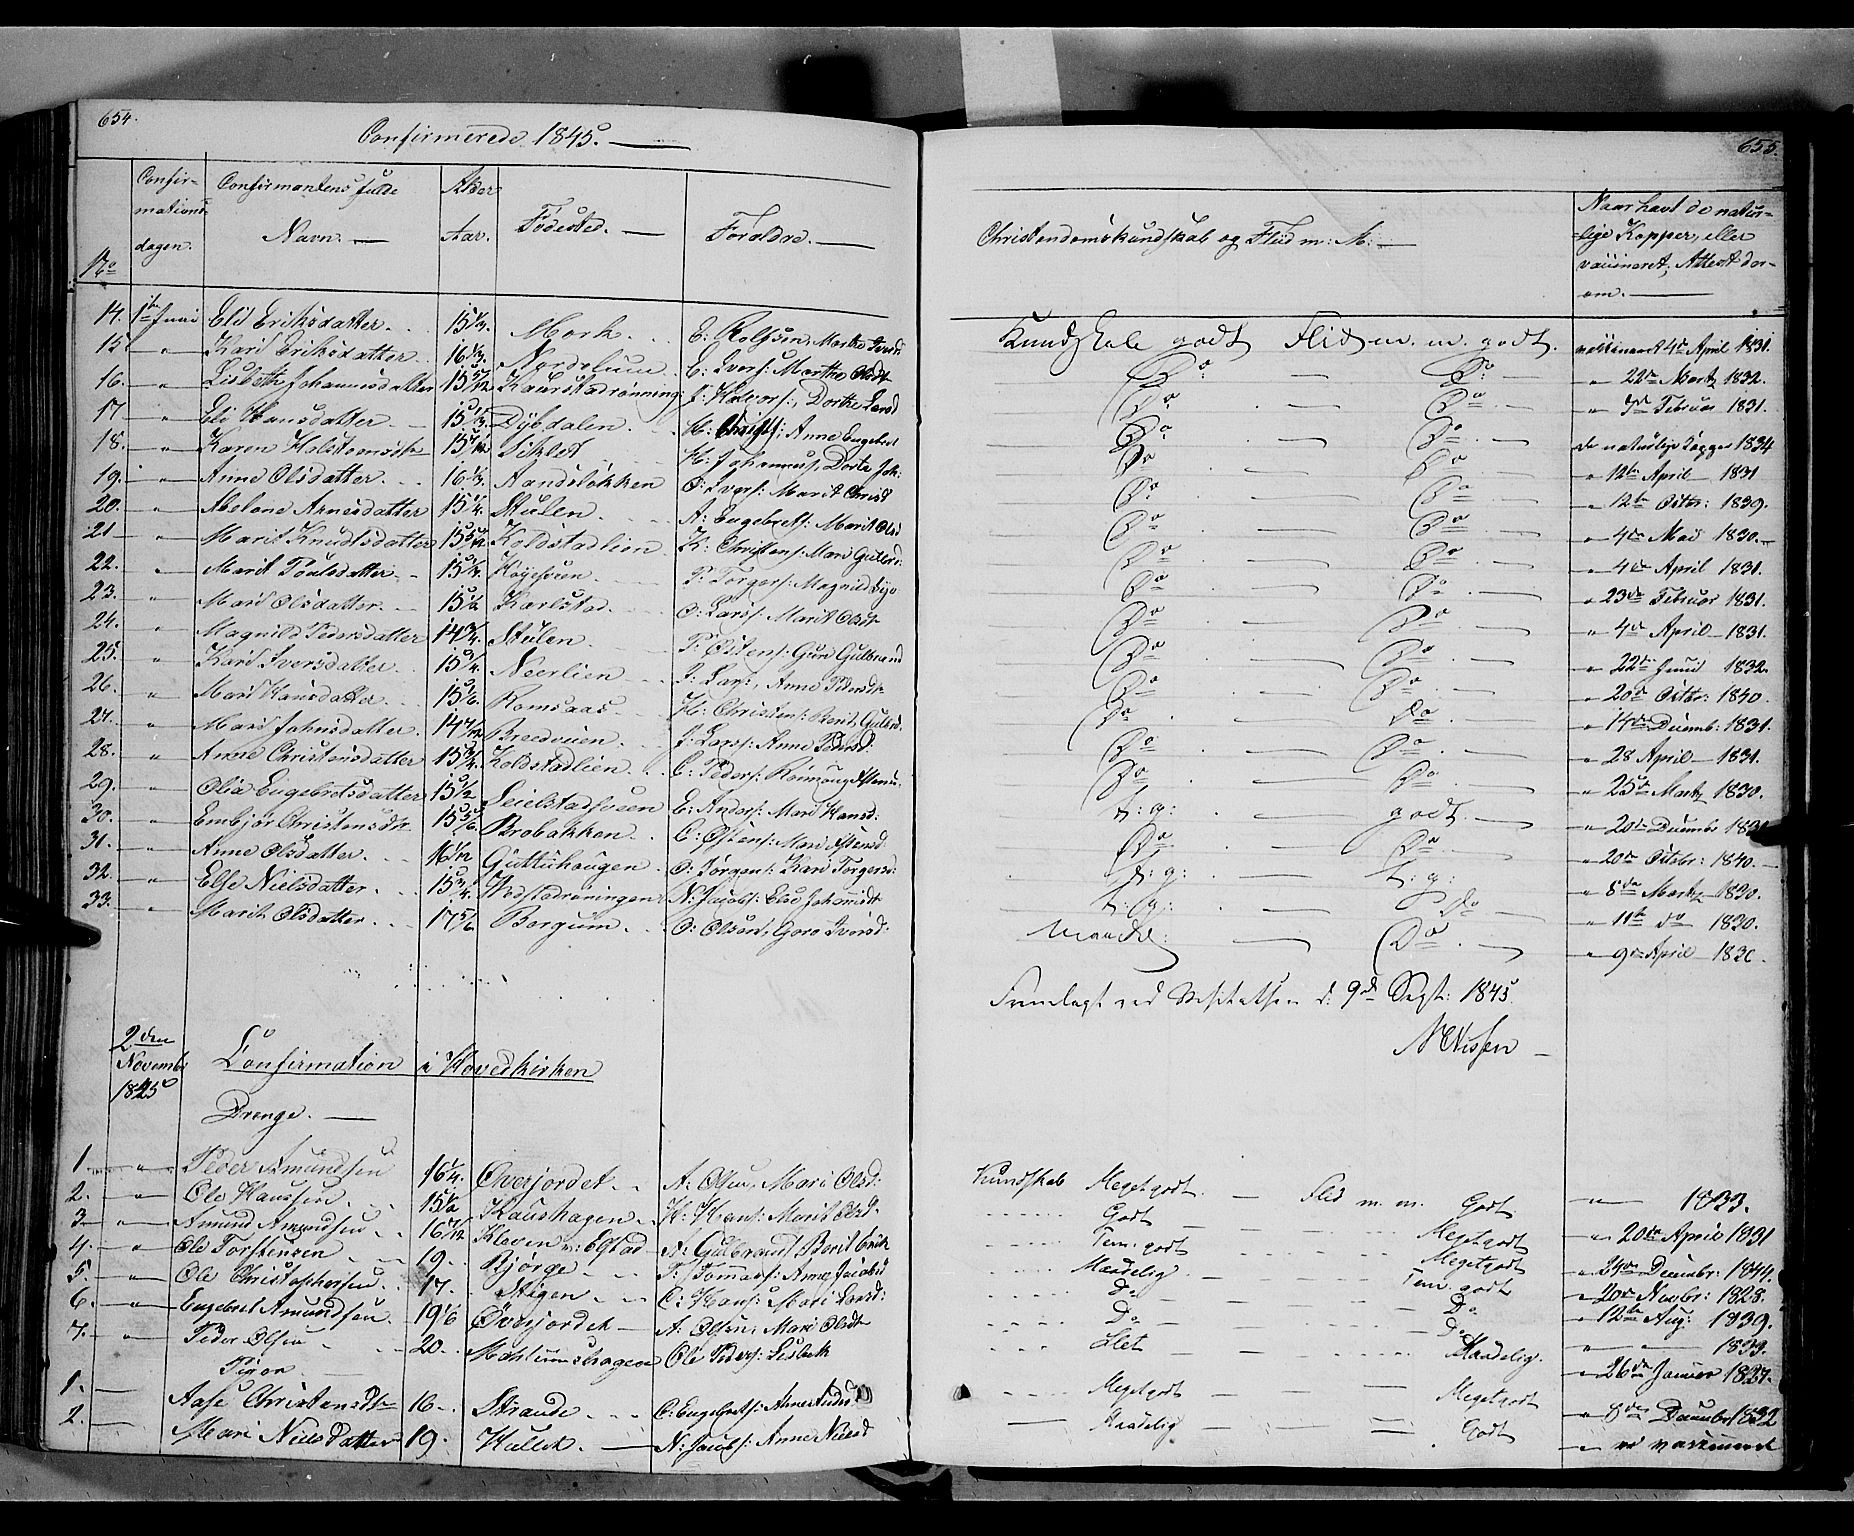 654.
Confirmerede 1845.
No
Confirmationsdagen.
Confirmantens fulde Navn.
Alder Aar.
Fødested.
Forældre.
14. 1ste Juni Eli Eriksdatter. 15 1/3. Mork. E: Rolfsen, Marthe Iversd:
15. " Kari Eriksdatter 16 1/3. Nordelum E: Ivers: Marthe Olsdt
16. " Lisbeth Johannisdatter 15 5/12 Kaurstadrønning: J: Halvors:, Dorthe Larsd
17. " Eli Hansdatter 15 1/3. Dybdalen. H: Christs:, Anne Engebret
18. " Karen Holstensdtr Siklet H: Johannes, Dorte Joh:
19. " Anne Olsdatter. 16 1/3. Aandsløkken O: Ivers: Marit Christ
20. " Arnesdatter 15 1/4. Stulen. A: Engebrets: Marit Olsd
21 " Marit Knudtsdatter Koldstadlien K: Christens: Mari Gulbrd:
22. " Marit Poulsdatter. 15 1/3. Høyesveen P: Torgers: Magnild
23. " Mari Olsdatter. 15 1/2 Karlstad. O: Lars: Marit Olsdt
24. " Magnild Pedersdatter 14 3/4. Stulen P: Østens: Guri Gulbrand
25. " Kari Iversdatter 15 1/4. Neerlien I: Lars:, Anne Pedersdt
26. " Mari Hansdatter 15 1/6. Romsaas H: Christens: Berit Gulbrd.
27. " Mari Johnsdatter 14 7/12 Breedveien J: Lars: Anne Pedersd:
28. " Anne Christensdatter 15 3/4. Koldstadlien. C: Peders: Rønnoug Østens:
29. " Olia Engebretsdatter 15 1/2 Leielstadsveen E: Anders: Mari Hansd:
30. " Embjør Christensdtr 15 5/6 Brobakken. C: Østens: Mari Østensd
31. " Anne Olsdatter. 16 1/12 Guttuhaugen O: Jørgens: Kari Torgersd
32. " Else Nielsdatter 15 3/4. Vedstadrøningen N: Jacobs: Else Johannisdt
33. " Marit Olsdatter 17 5/6 Bergum. O: Olsen, Goro Iversd:
2den Novembr 1845
Confirmation i Hovedkirken
Drenge.
1. " Peder Amundsen 16 1/4. Øverjordet A: Olsen, Mari Olsd:
2. " Ole Hanssen 15 1/2 Haushagen H: Hans: Marit Olsd.
3. " Amund Amundsen 16 7/12 Kleven v: Elstad A: Gulbrands Berit Erik
4. " Ole Torstensen 19. Bjørge T: Tomas: Anne Jacobsd
5. " Ole Christophersen 17. Stigen C: Hans: Mari Iversd:
6. " Engebret Amundsen. 19 1/6 Øverjordet A: Olsen, Mari Olsdt
7. " Peder Olsen 20. Mæhlumshagen Ole Peders: Lisbeth
Piger
1. Aase Christensdtr 16. Strande C: Engebrets: Anne Pedersd
2. Mari Nielsdatter 19. Hullet N: Jacobs: Anne Nielsd
655.
Christendomskundskab og Flid m: M:
Naar havt de naturlige Kopper, eller vaccineret, Attest derom.
Kundskab godt Flid m. m. godt. vaccineret 4de April 1831.
Do Do " 22de Martz 1832.
Do Do " Februar 1831.
Do Do de naturlige Kopper 1834
Do Do " 12te April 1831
Do Do " 12te Octbr: 1839.
Do Do " 4de Mai 1830.
Do Do " 4de April 1831.
Do Do " 23de Februar 1831.
Do Do " 4de April 1831.
Do Do " 22de Juni 1832.
Do Do " 20de Octbr: 1840.
Do Do " 14de Decemb: 1831.
Do Do " 28 April 1831.
Do Do " 25de Martz 1830.
t: g: godt. " 20de Decembr 1831
Do Do " 20de Octbr: 1840.
t: g: t: g: " 8de Martz 1830.
t: g: Do " 11te do 1830.
Maadel: Do " 9de April 1830.
Fremlagt ved Visitatsen d: 9de Sept: 1845.
Nissen
Kundskab Meget godt. Flid m. m. Godt " 1833.
Godt Megetgodt " 20de April 1831
Tem. godt Megetgodt " 24de Decembr: 1844.
Maadelig Tem. godt " 20de Novbr: 1828.
Do Do " 12te Aug: 1839.
Do Do " 1833.
Slet Maadelig. " 26de Januar 1827.
Meget godt Megetgodt " 8de Decembr 1832
Maadelig Godt " er vaccineret